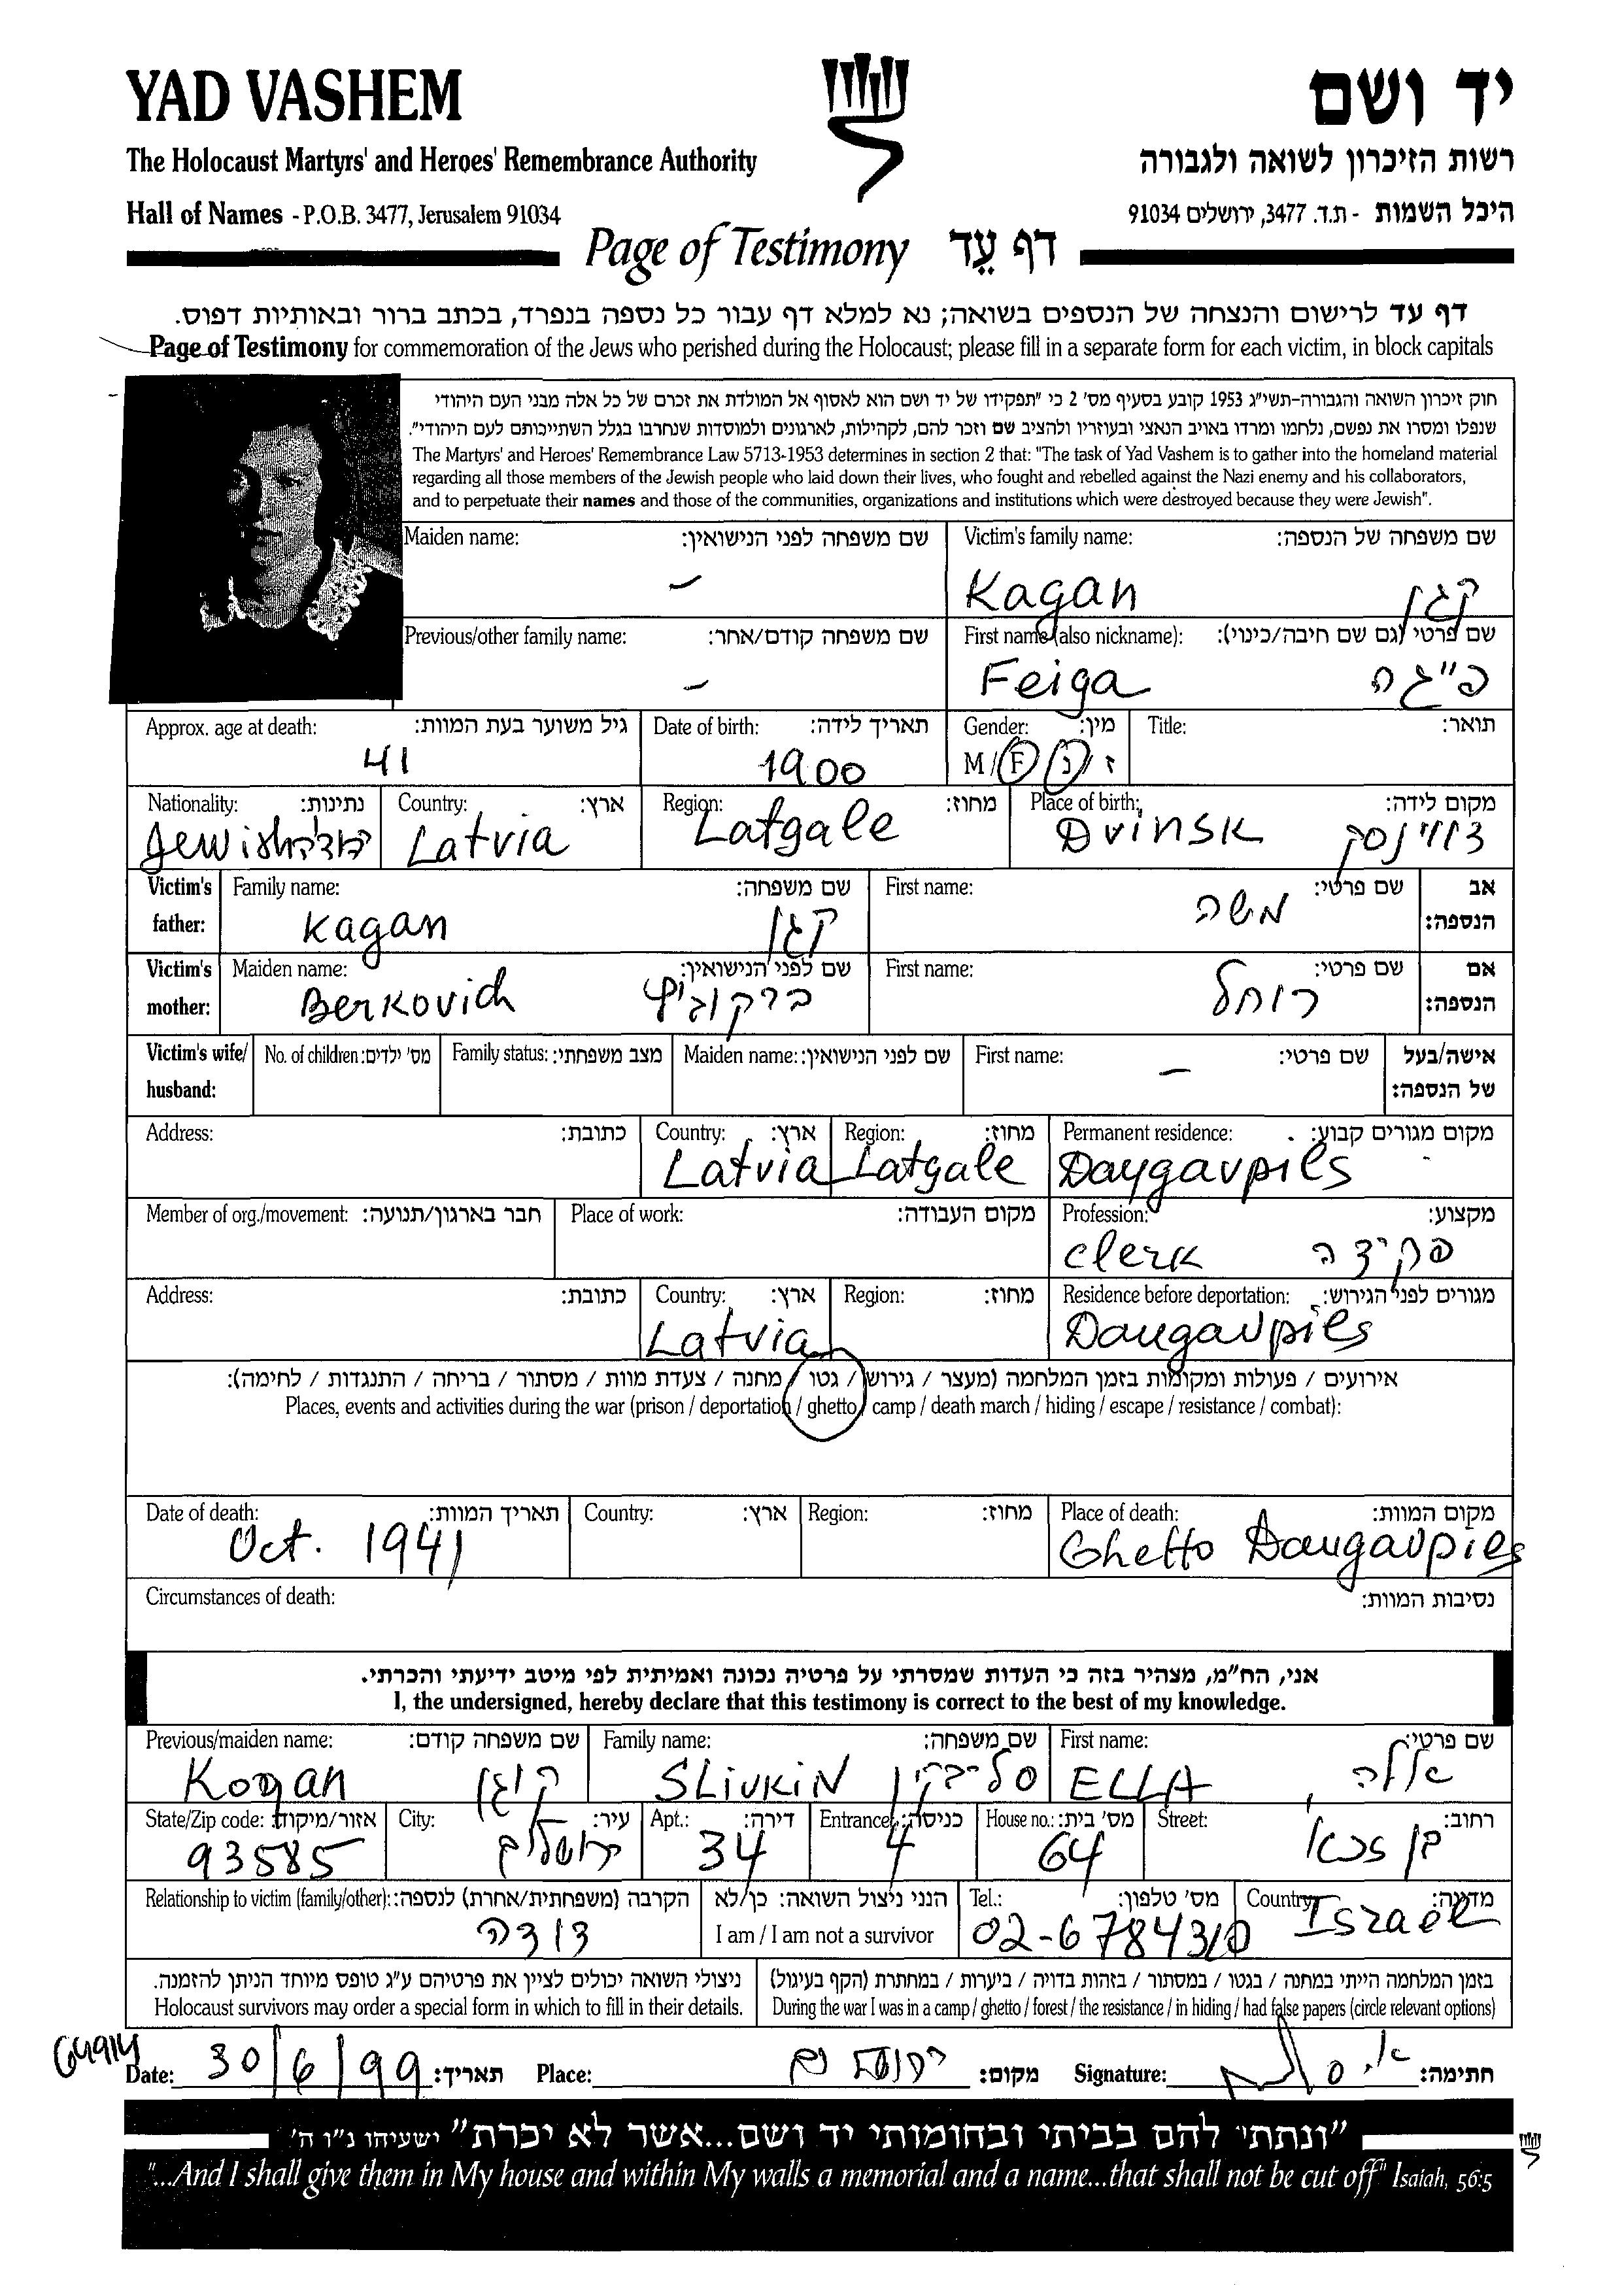 YAD VASHEM
יד ושם
The Holocaust Martyrs' and Heroes' Remembrance Authority
רשות הזיכרון לשואה ולגבורה
Hall of Names - P.O.B. 3477, Jerusalem 91034
היכל השמות - ת.ד. 3477, ירושלים 91034
Page of Testimony דף עֵד
דף עד לרישום והנצחה של הנספים בשואה; נא למלא דף עבור כל נספה בנפרד, בכתב ברור ובאותיות דפוס.
Page of Testimony for commemoration of the Jews who perished during the Holocaust; please fill in a separate form for each victim, in block capitals
חוק זיכרון השואה והגבורה-תשי"ג 1953 קובע בסעיף מס' 2 כי "תפקידו של יד ושם הוא לאסוף אל המולדת את זכרם של כל אלה מבני העם היהודי
שנפלו ומסרו את נפשם, נלחמו ומרדו באויב הנאצי ובעוזריו ולהציב שם וזכר להם, לקהילות, לארגונים ולמוסדות שנחרבו בגלל השתייכותם לעם היהודי".
The Martyrs' and Heroes' Remembrance Law 5713-1953 determines in section 2 that: "The task of Yad Vashem is to gather into the homeland material
regarding all those members of the Jewish people who laid down their lives, who fought and rebelled against the Nazi enemy and his collaborators,
and to perpetuate their names and those of the communities, organizations and institutions which were destroyed because they were Jewish".
Maiden name: שם משפחה לפני הנישואין: Victim's family name: שם משפחה של הנספה:
– Kagan קגן
Previous/other family name: שם משפחה קודם/אחר: First name (also nickname): שם פרטי (גם שם חיבה/כינוי):
– Feiga פייגה
Approx. age at death: גיל משוער בעת המוות: Date of birth: תאריך לידה: Gender: מין: Title: תואר:
41 1900 M / F ז / נ
Nationality: נתינות: Country: ארץ: Region: מחוז: Place of birth: מקום לידה:
Jewish Latvia Latgale Dvinsk דווינסק
Victim's father: Family name: שם משפחה: First name: שם פרטי: אב הנספה:
Kagan קגן משה
Victim's mother: Maiden name: שם לפני הנישואין: First name: שם פרטי: אם הנספה:
Berkovich ברקוביץ רוחל
Victim's wife/ husband: No. of children: מס' ילדים: Family status: מצב משפחתי: Maiden name: שם לפני הנישואין: First name: שם פרטי: אישה/בעל של הנספה:
–
Address: כתובת: Country: ארץ: Region: מחוז: Permanent residence: מקום מגורים קבוע:
Latvia Latgale Daygavpils
Member of org./movement: חבר בארגון/תנועה: Place of work: מקום העבודה: Profession: מקצוע:
Clerk פקידה
Address: כתובת: Country: ארץ: Region: מחוז: Residence before deportation: מגורים לפני הגירוש:
Latvia Daugavpils
אירועים / פעולות ומקומות בזמן המלחמה (מעצר / גירוש / גטו / מחנה / צעדת מוות / מסתור / בריחה / התנגדות / לחימה):
Places, events and activities during the war (prison / deportation / ghetto / camp / death march / hiding / escape / resistance / combat):
Date of death: תאריך המוות: Country: ארץ: Region: מחוז: Place of death: מקום המוות:
Oct. 1941 Ghetto Daugavpils
Circumstances of death: נסיבות המוות:
אני, הח"מ, מצהיר בזה כי העדות שמסרתי על פרטיה נכונה ואמיתית לפי מיטב ידיעתי והכרתי.
I, the undersigned, hereby declare that this testimony is correct to the best of my knowledge.
Previous/maiden name: שם משפחה קודם: Family name: שם משפחה: First name: שם פרטי:
Kogan קוגן SLivKiN סליבקין ELLA אללה
State/Zip code: אזור/מיקוד: City: עיר: Apt.: דירה: Entrance: כניסה: House no.: מס' בית: Street: רחוב:
93585 ירושלים 34 4 64 בן זכאי
Relationship to victim (family/other): הקרבה (משפחתית/אחרת) לנספה: הנני ניצול השואה: כן/לא Tel.: מס' טלפון: Country: מדינה:
דודה I am / I am not a survivor 02-6784310 Israel
ניצולי השואה יכולים לציין את פרטיהם ע"ג טופס מיוחד הניתן להזמנה. בזמן המלחמה הייתי במחנה / בגטו / במסתור / בזהות בדויה / ביערות / במחתרת (הקף בעיגול)
Holocaust survivors may order a special form in which to fill in their details. During the war I was in a camp / ghetto / forest / the resistance / in hiding / had false papers (circle relevant options)
Date: 30/6/99 תאריך: Place: ירושלים מקום: Signature: חתימה:
"ונתתי להם בביתי ובחומותי יד ושם...אשר לא יכרת" ישעיהו נ"ו ה'
"...And I shall give them in My house and within My walls a memorial and a name...that shall not be cut off" Isaiah, 56:5